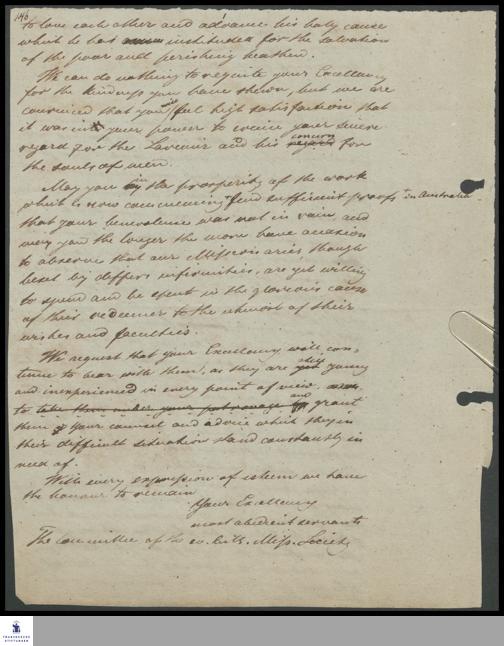 146
to love each other and advance his holy cause
which he has instituted for the salvation
of the poor and perishing heathen.
We can do nothing to requite your Excellency
for the kindness you have shewn, but we are
convinced that you will feel high satisfaction that
it was in your power to evince your sincere
regard for the Saviour and his regard concern for
the souls of men.
May you in the prosperity of the work
which is now commencing + find sufficient proofs + in Australia
that your benevolence was not in vain and
may you the longer the more have occasion
to observe that our Missionaries, though
beset by differs infirmities, are yet willing
to spend and be spent in the glorious cause
of their redeemer to the utmost of their
wishes and faculties.
We request that your Excellency will con=
tinue to bear with them, as they are yet still young
and inexperienced in every point of view,
to take them under your patronage and grant
them your counsel and advice which they in
their difficult situation stand constantly in
need of.
With every expression of esteem we have
the honour to remain
Your Excellency
most obedient servants
The committee of the ev. Luth. Miss. Society
FRANCKESCHE
STIFTUNGEN